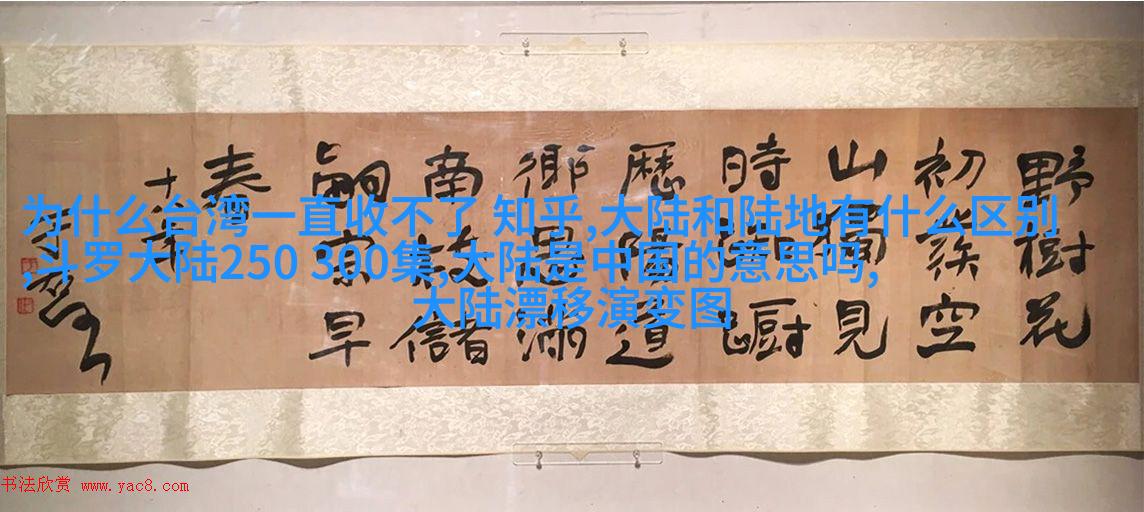 为什么台湾一直收不了 知乎,大陆和陆地有什么区别
,斗罗大陆250 300集,大陆是中国的意思吗,
大陆漂移演变图
野樹花
初發空
山獨見
時踟躕
歷陽道
鄉思滿
南枝儲
嗣宗早
春
书法欣赏 www.yac8.com